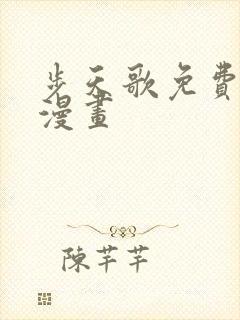 步天歌免費
漫畫
陳芊芊